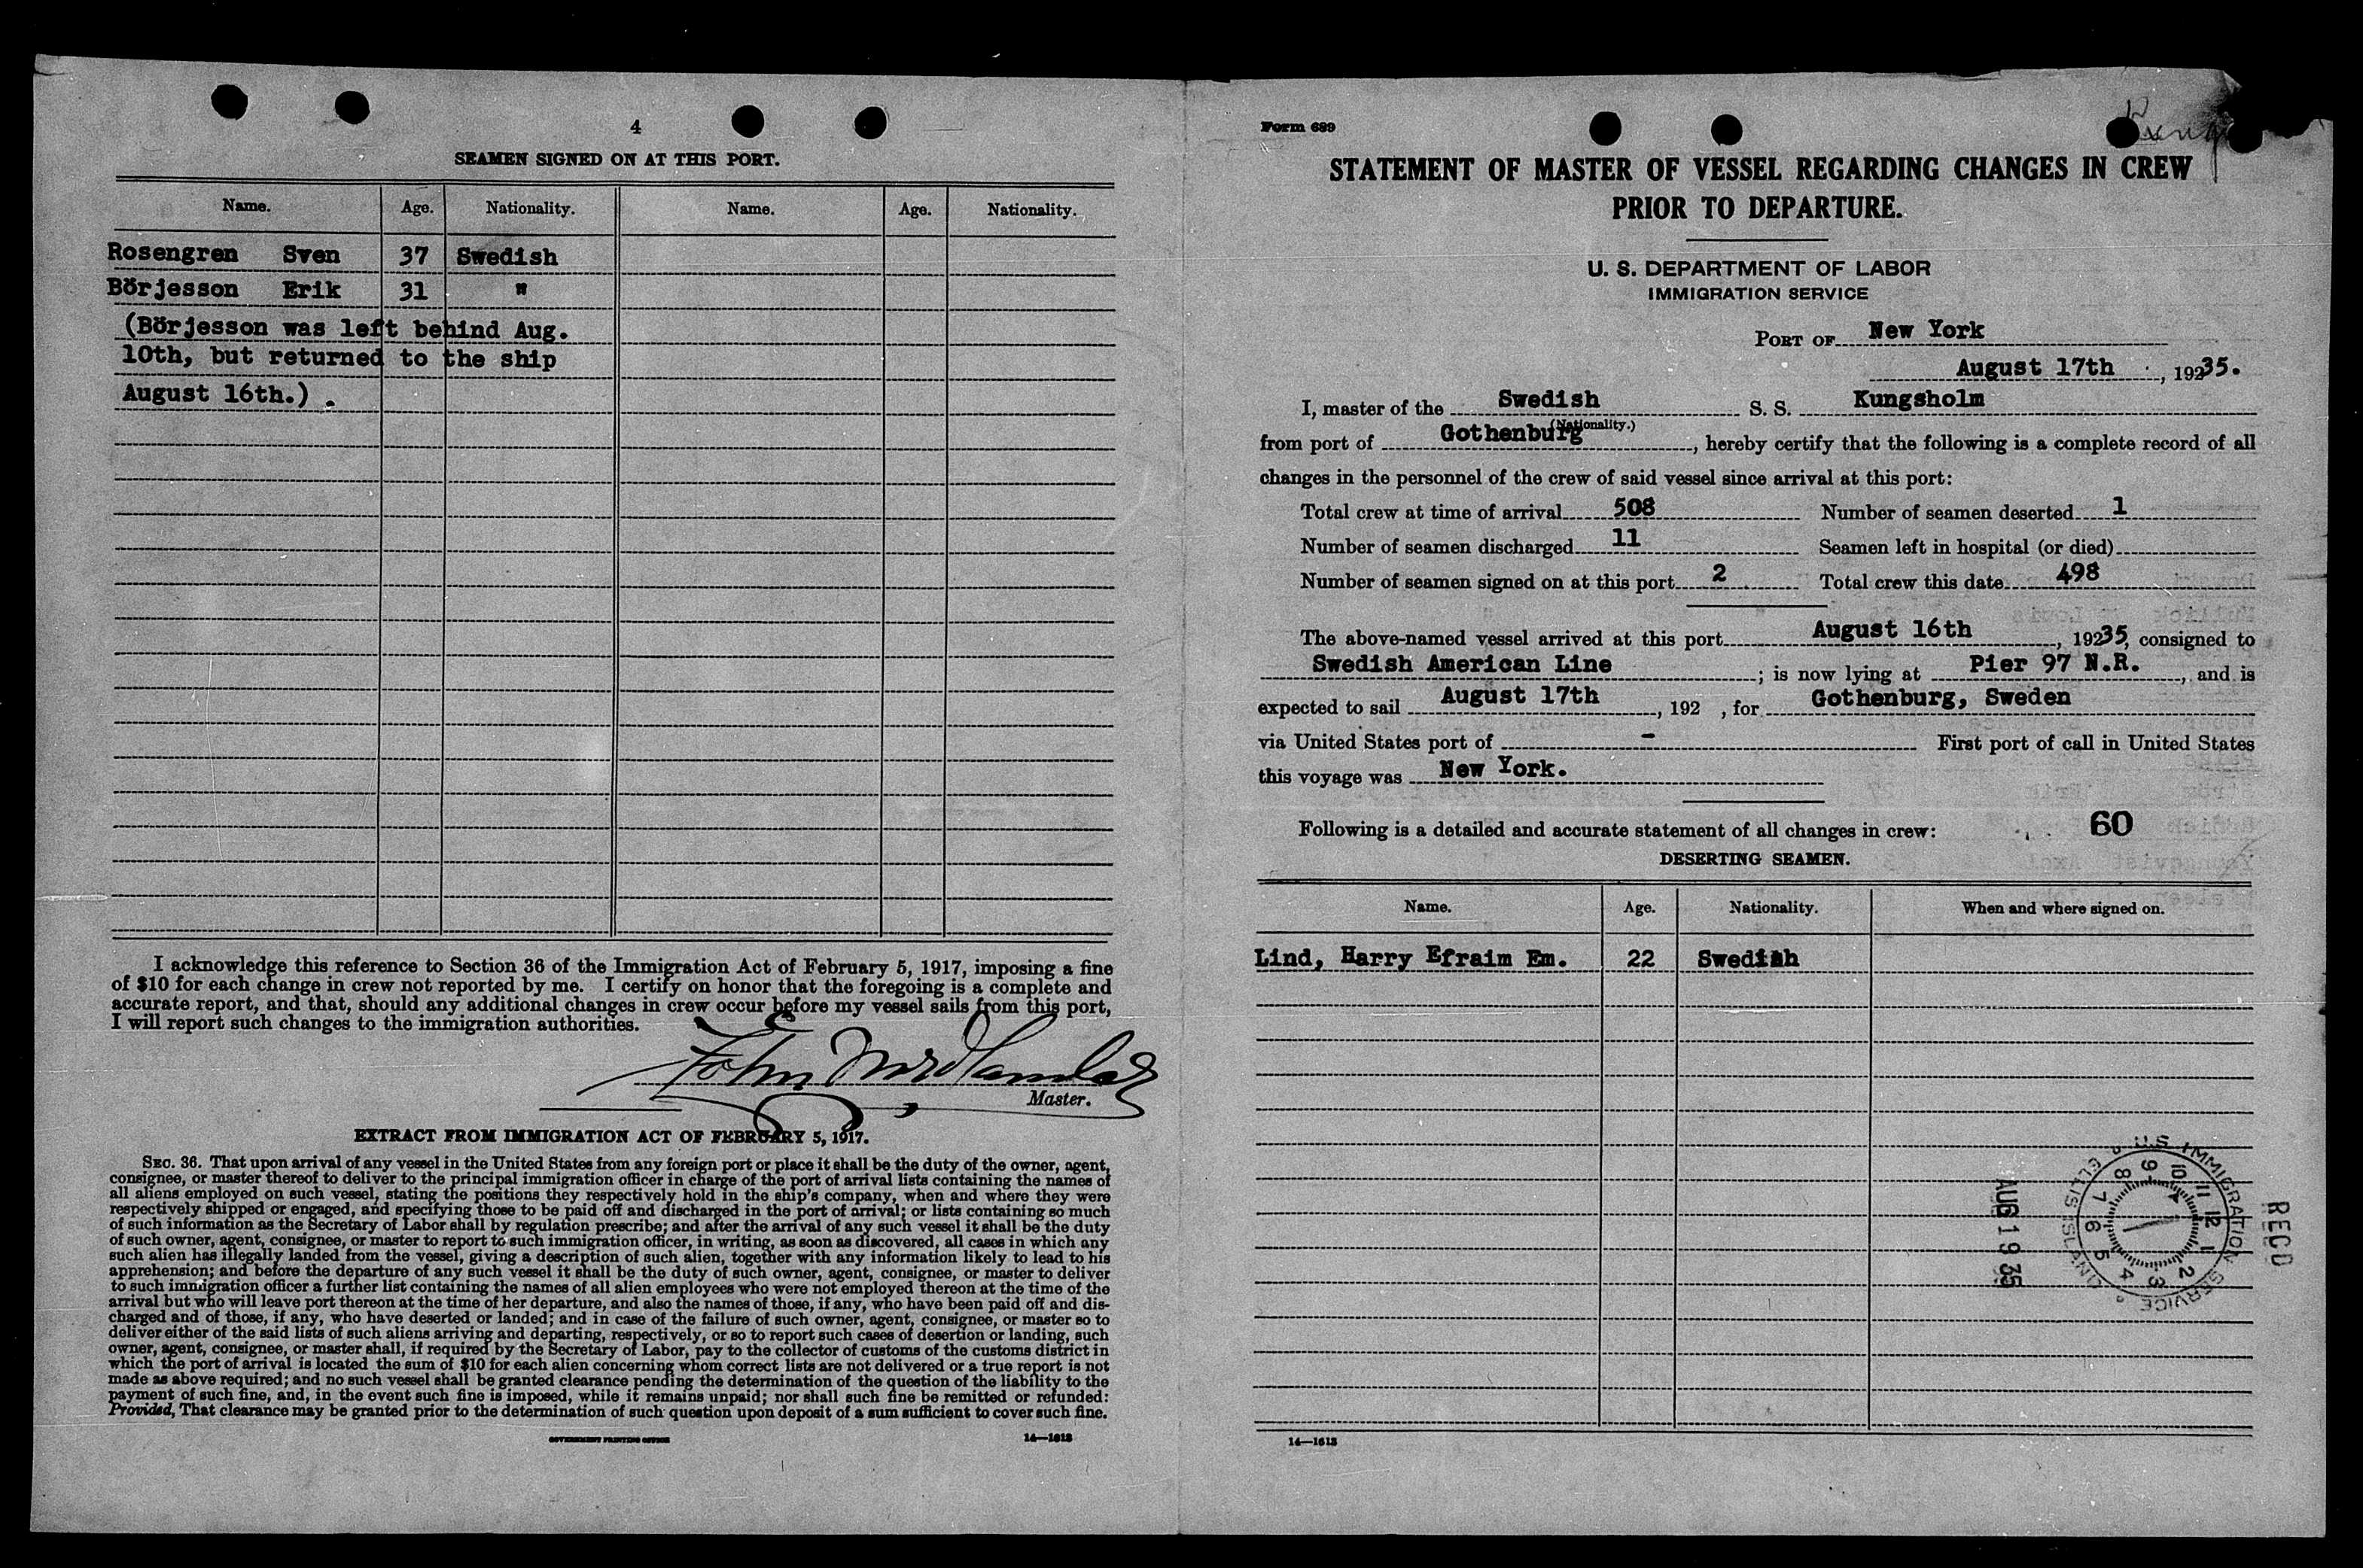 4
SEAMEN SIGNED ON AT THIS PORT.
Name. Age. Nationality. Name. Age. Nationality.
Rosengren Sven 37 Swedish
Börjesson Erik 31 "
(Börjesson was left behind Aug.
10th, but returned to the ship
August 16th.).
I acknowledge this reference to Section 36 of the Immigration Act of February 5, 1917, imposing a fine
of $10 for each change in crew not reported by me. I certify on honor that the foregoing is a complete and
accurate report, and that, should any additional changes in crew occur before my vessel sails from this port,
I will report such changes to the immigration authorities.
John Nordlander
Master.
EXTRACT FROM IMMIGRATION ACT OF FEBRUARY 5, 1917.
SEC. 36. That upon arrival of any vessel in the United States from any foreign port or place it shall be the duty of the owner, agent,
consignee, or master thereof to deliver to the principal immigration officer in charge of the port of arrival lists containing the names of
all aliens employed on such vessel, stating the positions they respectively hold in the ship's company, when and where they were
respectively shipped or engaged, and specifying those to be paid off and discharged in the port of arrival; or lists containing so much
of such information as the Secretary of Labor shall by regulation prescribe; and after the arrival of any such vessel it shall be the duty
of such owner, agent, consignee, or master to report to such immigration officer, in writing, as soon as discovered, all cases in which any
such alien has illegally landed from the vessel, giving a description of such alien, together with any information likely to lead to his
apprehension; and before the departure of any such vessel it shall be the duty of such owner, agent, consignee, or master to deliver
to such immigration officer a further list containing the names of all alien employees who were not employed thereon at the time of the
arrival but who will leave port thereon at the time of her departure, and also the names of those, if any, who have been paid off and dis-
charged and of those, if any, who have deserted or landed; and in case of the failure of such owner, agent, consignee, or master so to
deliver either of the said lists of such aliens arriving and departing, respectively, or so to report such cases of desertion or landing, such
owner, agent, consignee, or master shall, if required by the Secretary of Labor, pay to the collector of customs of the customs district in
which the port of arrival is located the sum of $10 for each alien concerning whom correct lists are not delivered or a true report is not
made as above required; and no such vessel shall be granted clearance pending the determination of the question of the liability to the
payment of such fine, and, in the event such fine is imposed, while it remains unpaid; nor shall such fine be remitted or refunded:
Provided, That clearance may be granted prior to the determination of such question upon deposit of a sum sufficient to cover such fine.
GOVERNMENT PRINTING OFFICE 14—1613
Form 689
STATEMENT OF MASTER OF VESSEL REGARDING CHANGES IN CREW
PRIOR TO DEPARTURE.
U. S. DEPARTMENT OF LABOR
IMMIGRATION SERVICE
PORT OF New York
August 17th, 19235.
I, master of the Swedish S. S. Kungsholm
(Nationality.)
from port of Gothenburg, hereby certify that the following is a complete record of all
changes in the personnel of the crew of said vessel since arrival at this port:
Total crew at time of arrival 508 Number of seamen deserted 1
Number of seamen discharged 11 Seamen left in hospital (or died)
Number of seamen signed on at this port 2 Total crew this date 498
The above-named vessel arrived at this port August 16th, 19235, consigned to
Swedish American Line; is now lying at Pier 97 N.R., and is
expected to sail August 17th, 192 , for Gothenburg, Sweden
via United States port of - First port of call in United States
this voyage was New York.
Following is a detailed and accurate statement of all changes in crew: 60
DESERTING SEAMEN.
Name. Age. Nationality. When and where signed on.
Lind, Harry Efraim Em. 22 Swedish
RECD
U.S IMMIGRATION SERVICE ELLIS ISLAND
8 9 10 11 12 1 2 3 4 5 6 7
AUG 19 35
14—1613